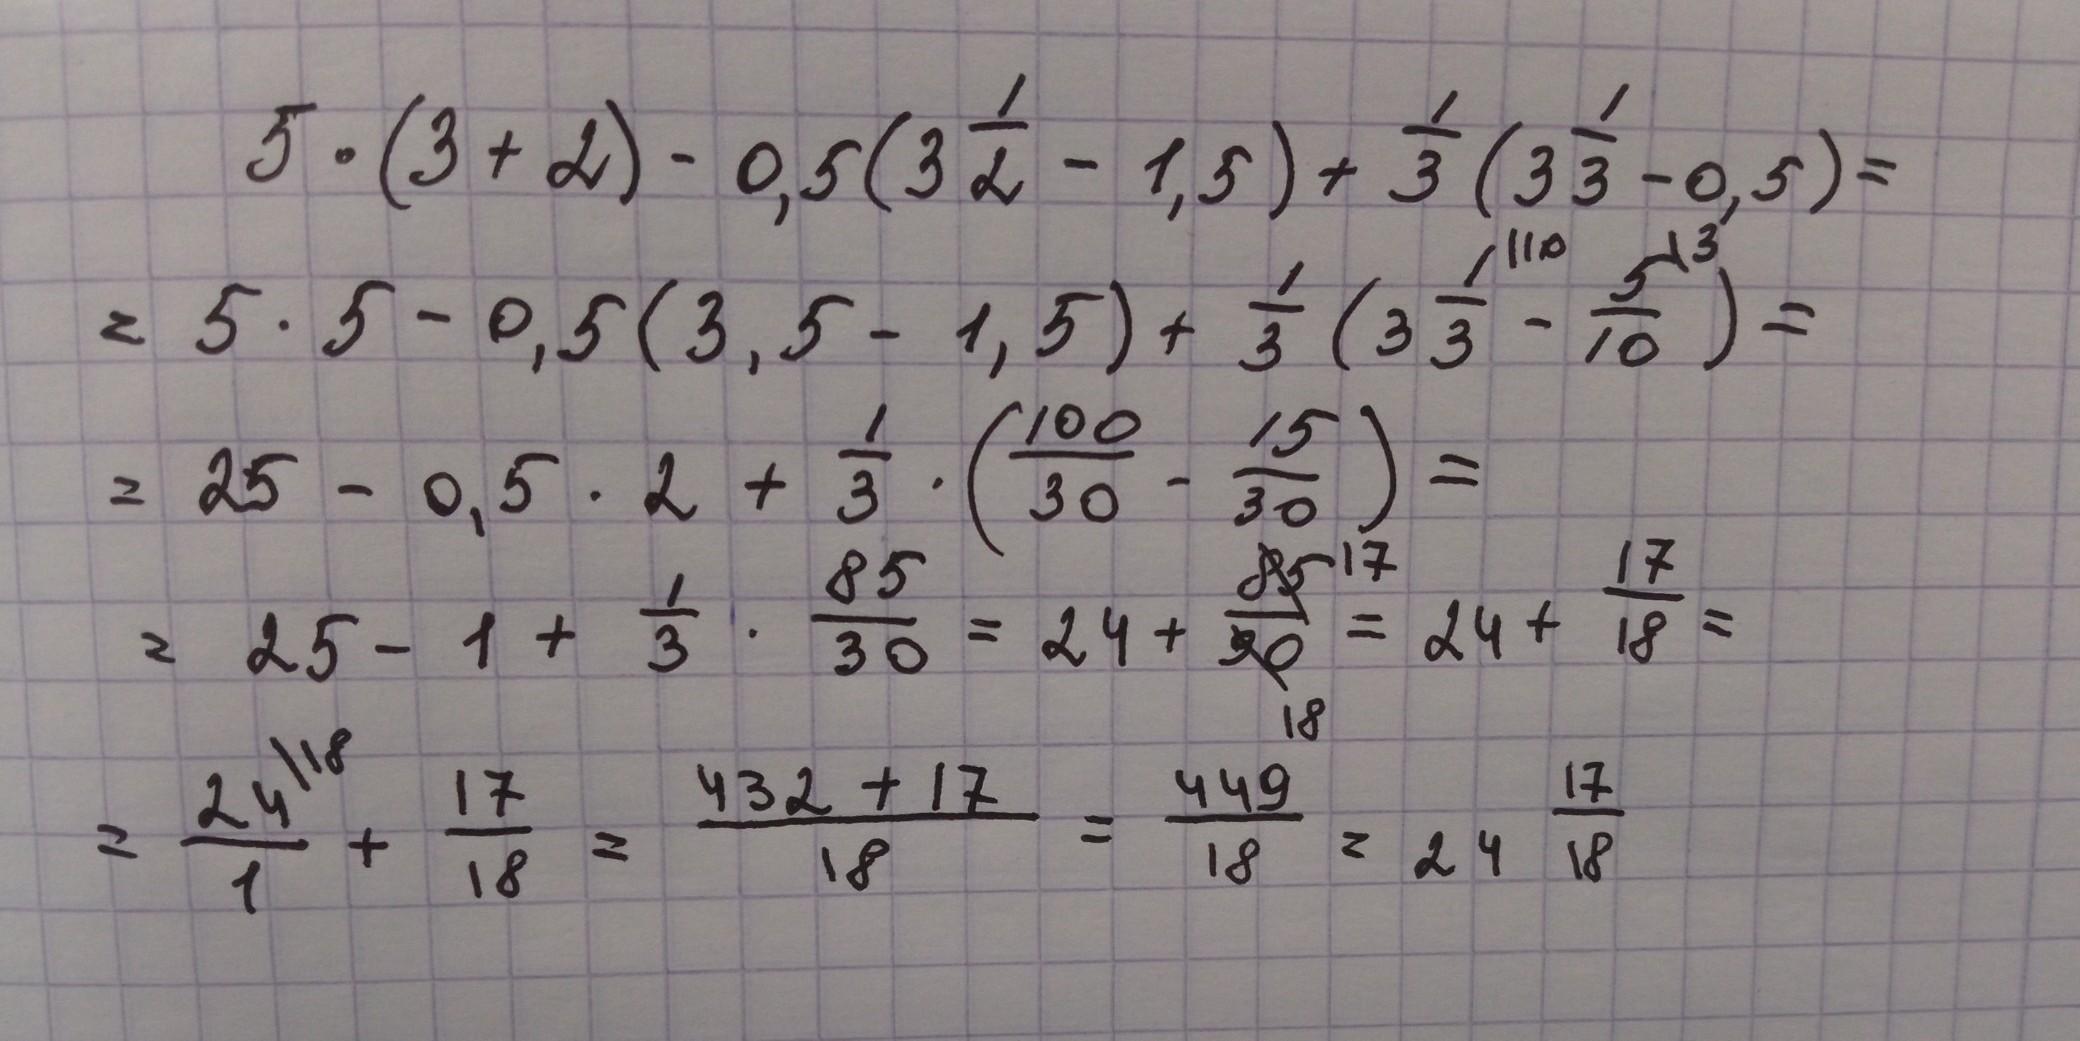 5 · (3 + 2) - 0,5(3 1/2 - 1,5) + 1/3 (3 1/3 - 0,5) =
= 5 · 5 - 0,5(3,5 - 1,5) + 1/3 (3 1/3 \10 - 5/10 \3) =
= 25 - 0,5 · 2 + 1/3 · (100/30 - 15/30) =
= 25 - 1 + 1/3 · 85/30 = 24 + 85/90 17 18 = 24 + 17/18 =
= 24/1 \18 + 17/18 = (432 + 17)/18 = 449/18 = 24 17/18